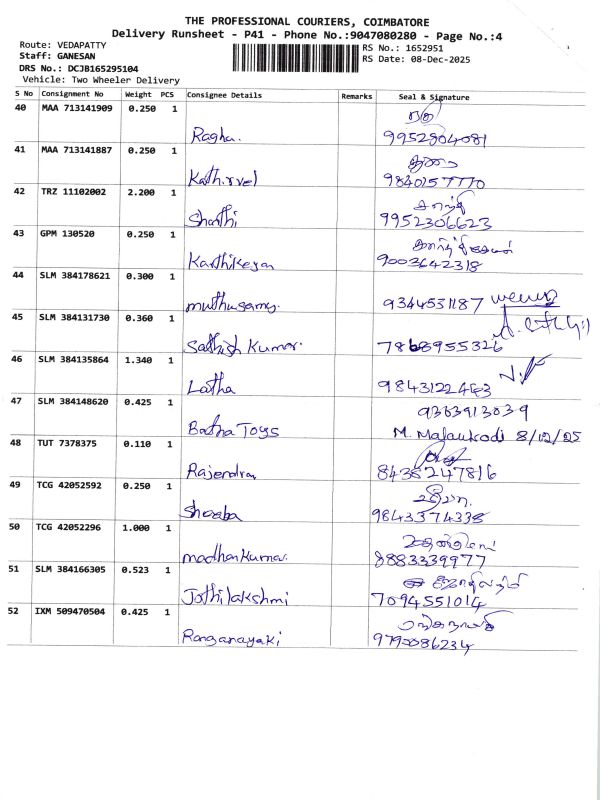 THE PROFESSIONAL COURIERS, COIMBATORE
Delivery Runsheet - P41 - Phone No.:9047080280 - Page No.:4
Route: VEDAPATTY
Staff: GANESAN
DRS No.: DCJB165295104
Vehicle: Two Wheeler Delivery
RS No.: 1652951
RS Date: 08-Dec-2025
S No Consignment No Weight PCS Consignee Details Remarks Seal & Signature
40 MAA 713141909 0.250 1
Ragha. 9952804081
41 MAA 713141887 0.250 1
Kathirvel 9840157770
42 TRZ 11102002 2.200 1 சாந்தி
Shanthi 9952306623
43 GPM 130520 0.250 1 கார்த்திகேயன்
Karthikeyan 9003642318
44 SLM 384178621 0.300 1
muthusamy. 9344531187
45 SLM 384131730 0.360 1
Sathish Kumar. 7868955326
46 SLM 384135864 1.340 1
Latha 9843122463
47 SLM 384148620 0.425 1 9363913039
Batha Toys M. Malarkodi 8/12/25
48 TUT 7378375 0.110 1
Rajendran 8438247816
49 TCG 42052592 0.250 1
Shobha 9843374338
50 TCG 42052296 1.000 1
madhankumar. 8883339977
51 SLM 384166305 0.523 1
Jothilakshmi 7094551014
52 IXM 509470504 0.425 1 ரங்கநாயகி
Ranganayaki 9790086234